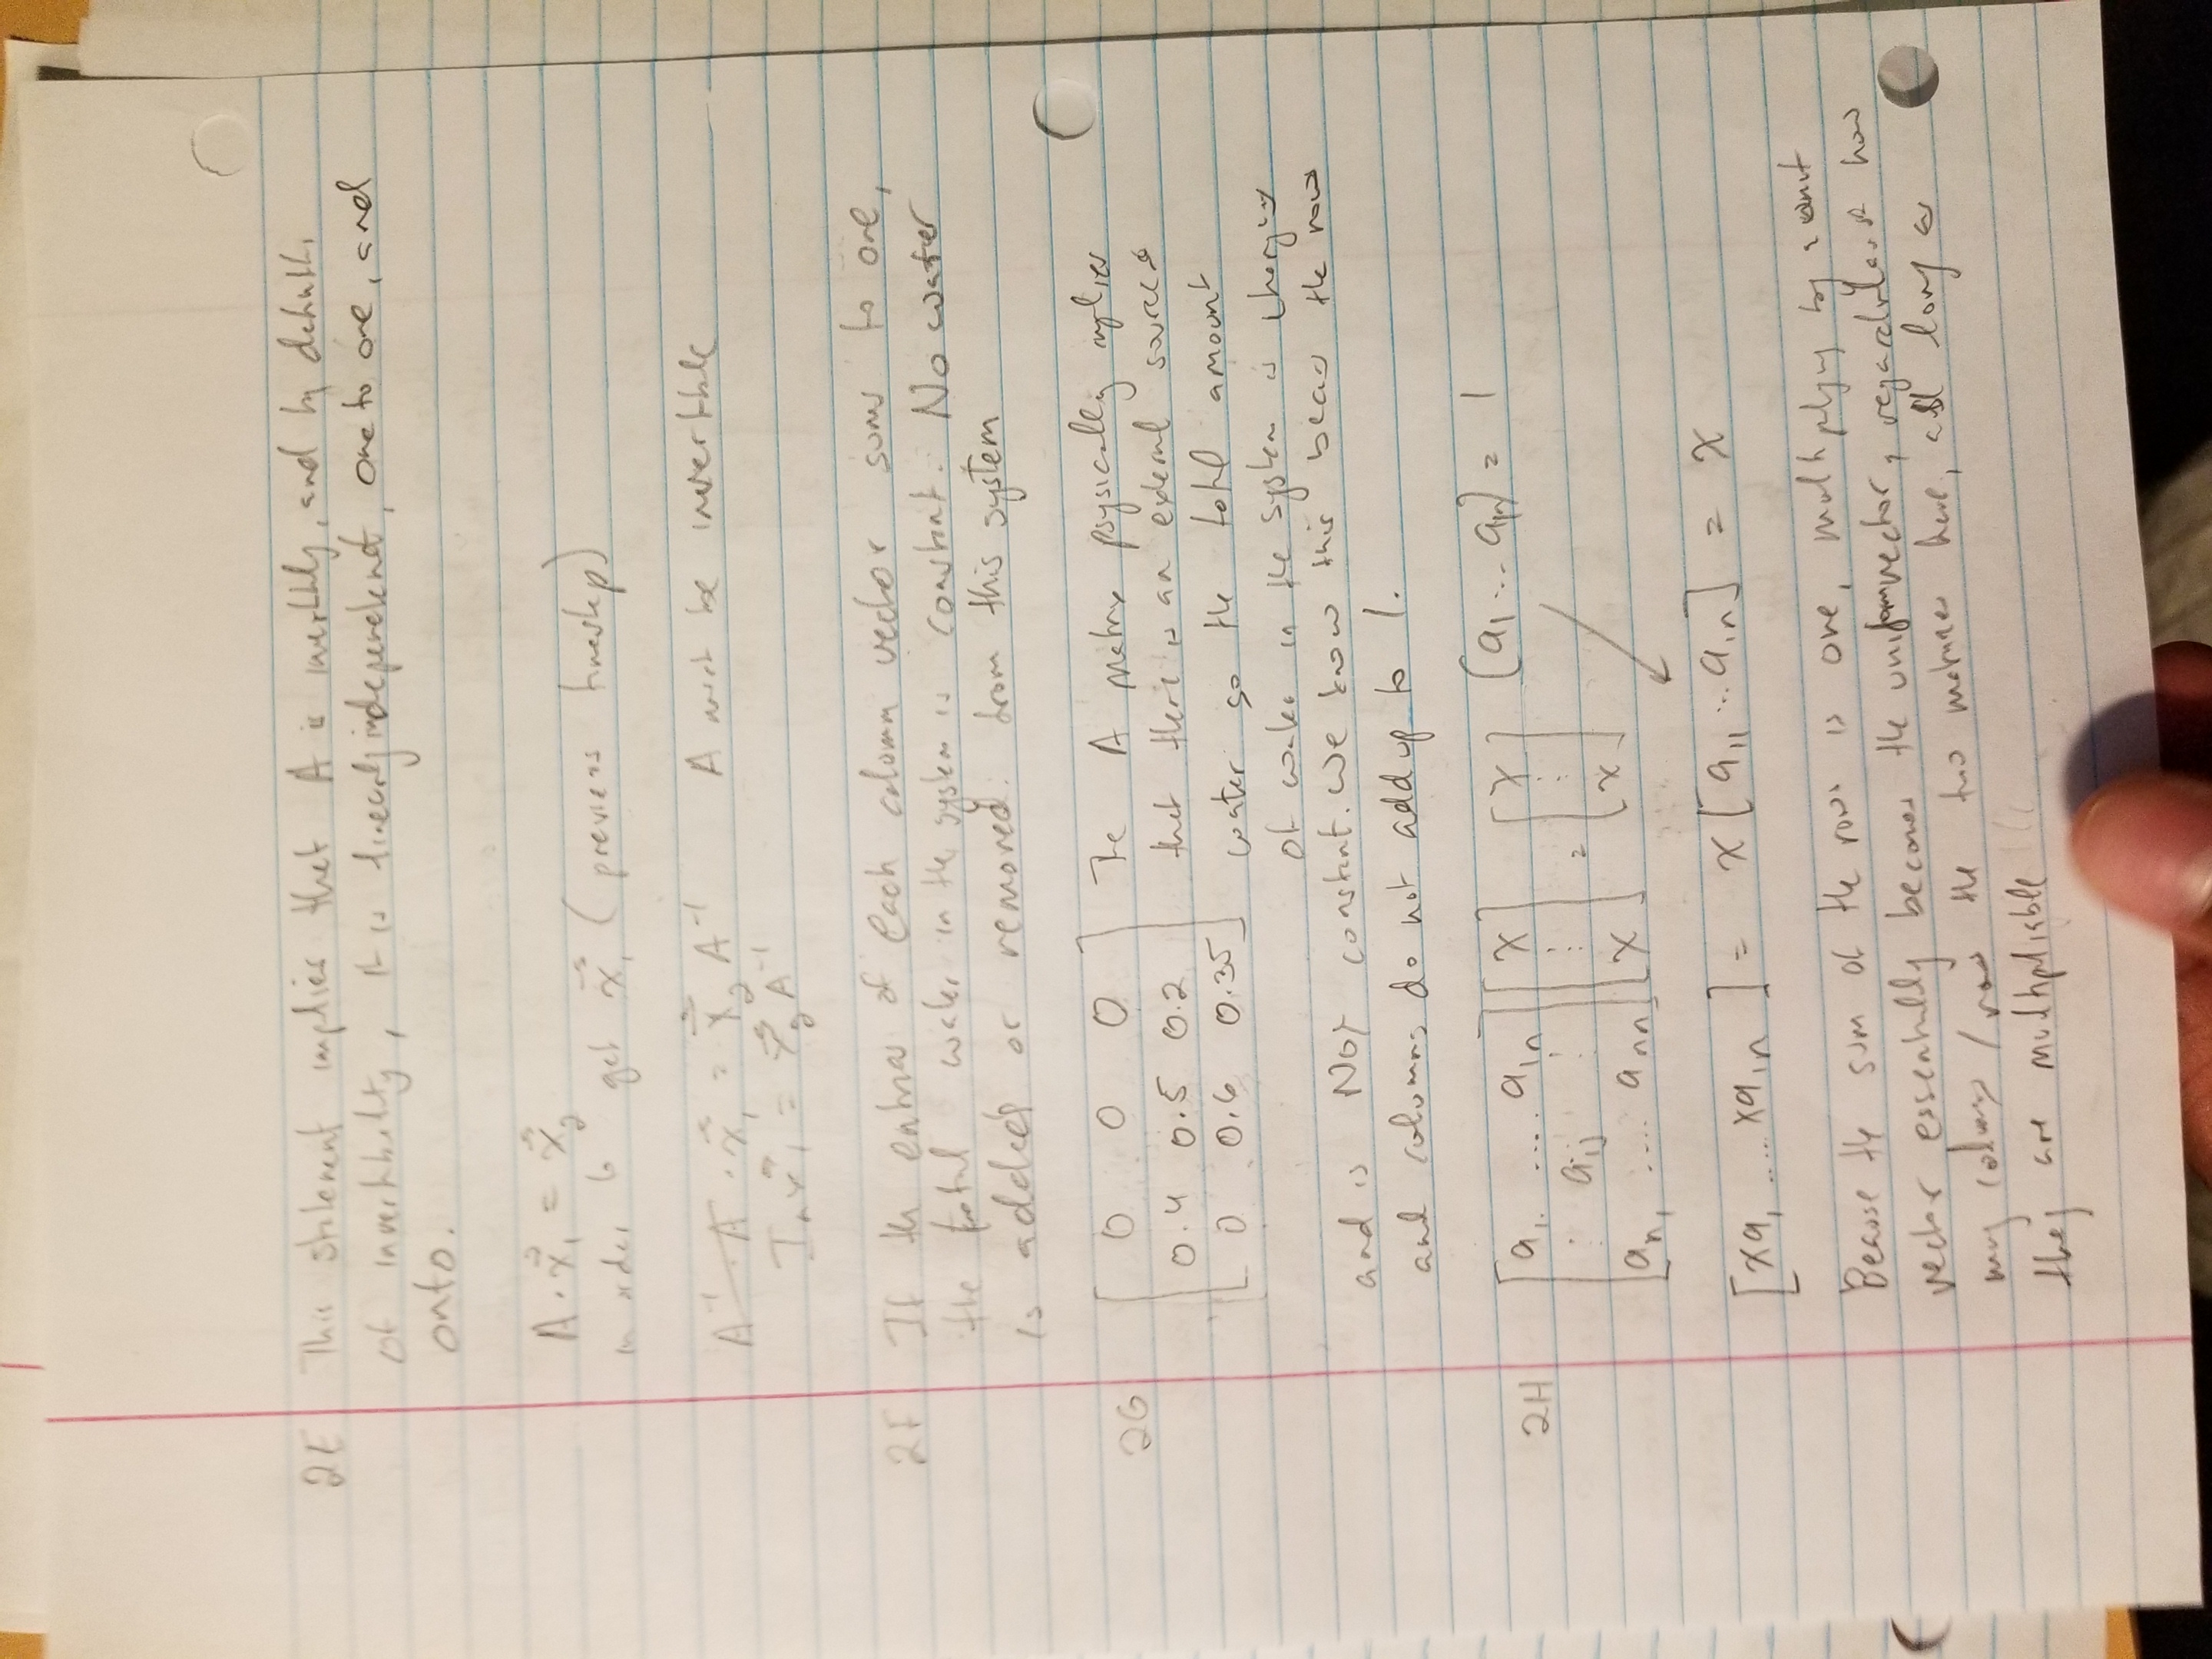 2E This statement implies that A is invertibly, and by default,
of invertibility, it is linearly independent, one to one, and
onto.
A · x⃗₁ = x⃗₂
in order to get x⃗₁ (previous timestep)
A⁻¹ · A · x⃗₁ = x⃗₂ A⁻¹ A must be invertible
Iₙ x⃗₁ = x⃗₂ A⁻¹
2F If the entries of each column vector sums to one,
the total water in the system is constant. No water
is added or removed from this system
2G [ 0 0 0 The A matrix psysically implies
0.4 0.5 0.2 that there is an external source
0 0.6 0.35 ] water so the total amount
of water in the system is changing
and is Not constant. We know this the rows
and columns do not add up to 1.
2H [a₁. .... a₁ₙ ⋮ aᵢⱼ ⋮ aₙ₁ .... aₙₙ] [x ⋮ x] = [x ⋮ x] (a₁ ... a₁ₙ) = 1
[xa₁ ..... xa₁ₙ ] = x [a₁₁ ... a₁ₙ] = x
Because the sum of the rows is one, multiplying by a
vector essentially becomes the uniform vector, regardless of how
many columns / rows the two matrices have, as long as
they are multipliable